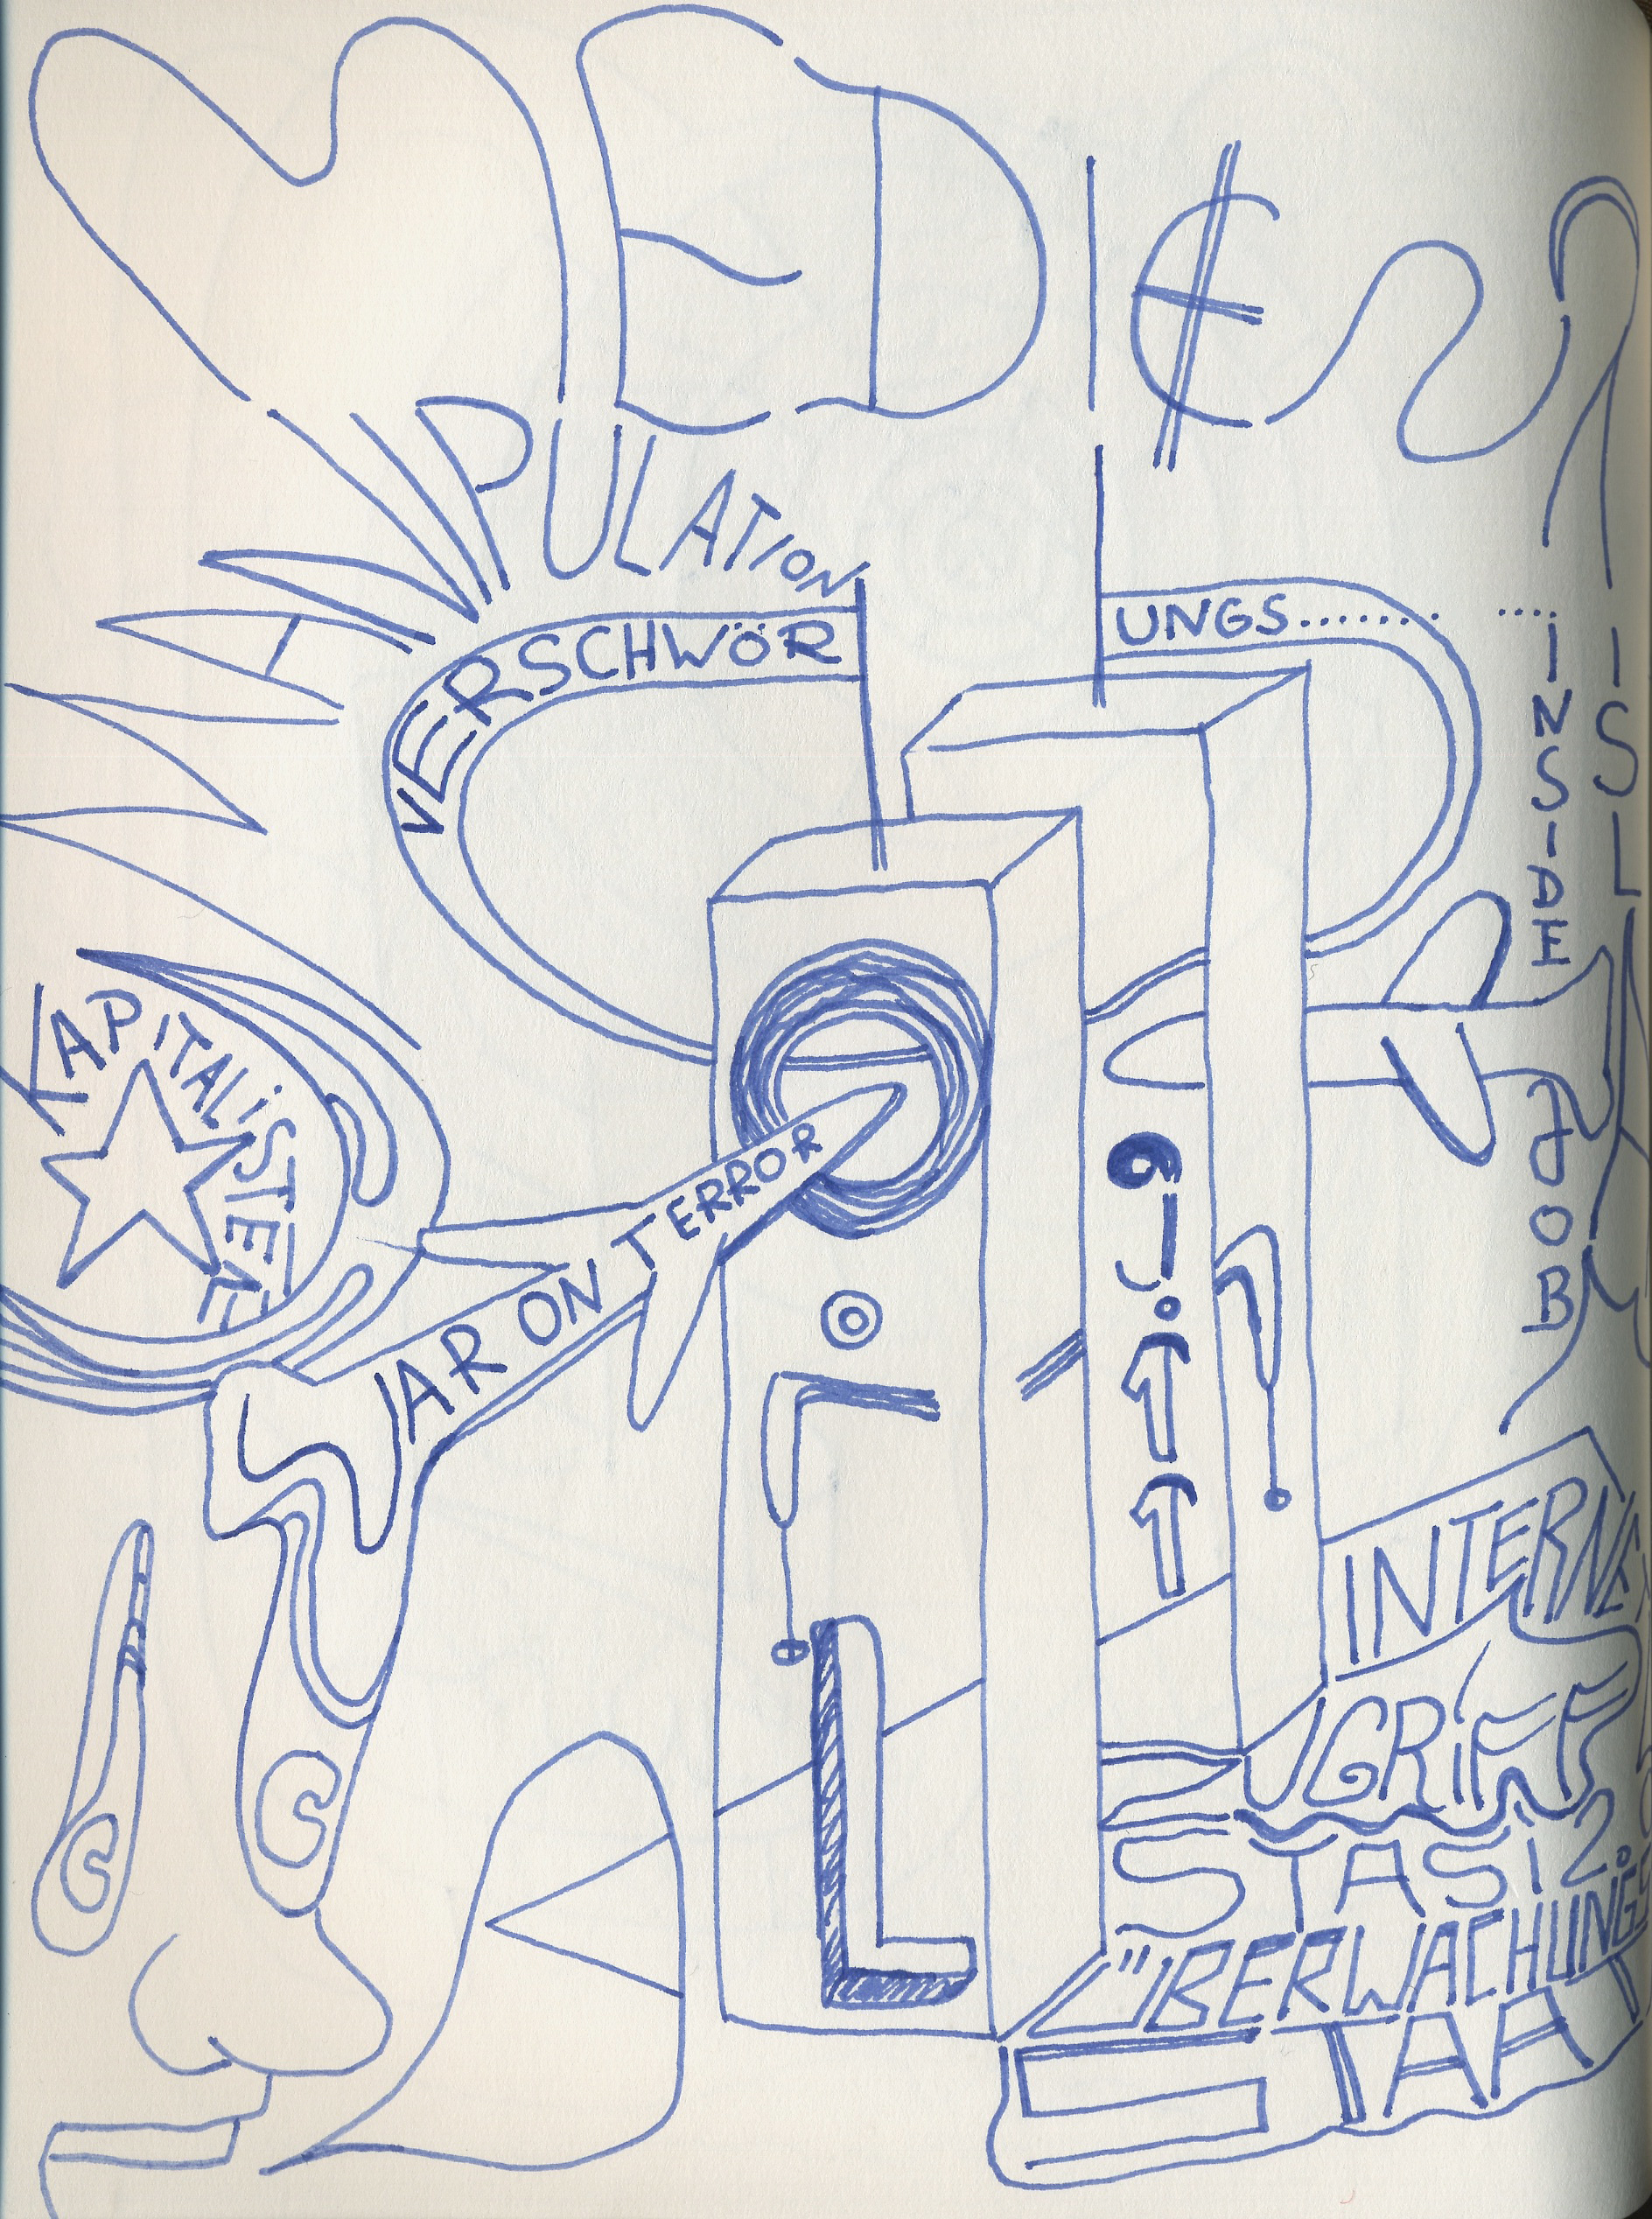 MEDIEN
MANIPULATION
VERSCHWÖR
UNGS...... ....
INSIDE
JOB
ISL
KAPITALISTEN
WAR ON TERROR
9.11
ÖL
INTERNET
ZUGRIFF
STASI 2.0
ÜBERWACHUNGS
STAAT